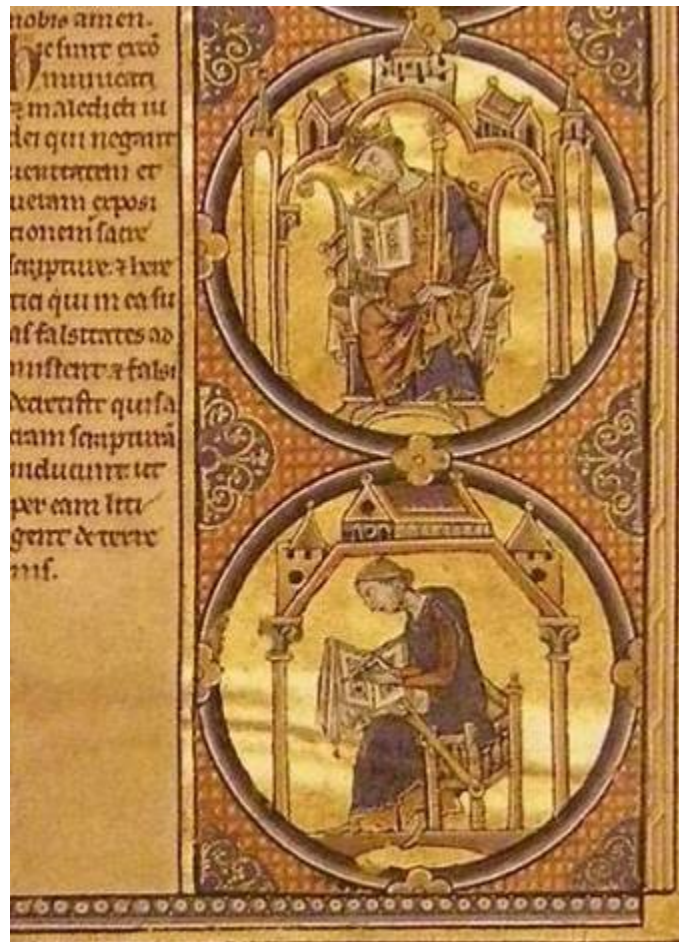 nobis amen.
Hic sunt excō
municati
⁊ maledicti iu
dei qui negant
ueritatem et
ueram exposi
tionem sacre
scripture. ⁊ here
tici qui in ea su
as falsitates ad
miscent ⁊ falsi
decretiste qui sa
cram scripturā
inducunt ut
per eam liti
gent de terre
nis.